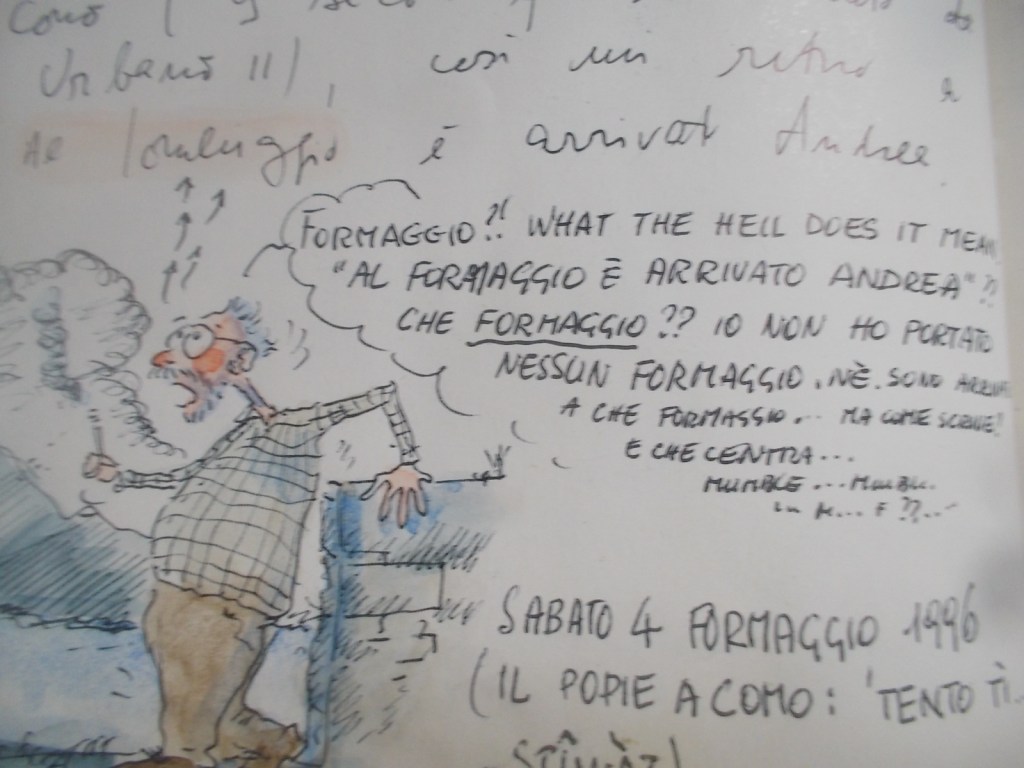 COMO
Urbanō III, così mi
Al formaggio ē arrivat Andrea
FORMAGGIO?! WHAT THE HELL DOES IT MEAN
"AL FORMAGGIO È ARRIVATO ANDREA"??
CHE FORMAGGIO?? IO NON HO PORTATO
NESSUN FORMAGGIO. NÈ. SONO ARRIVA
A CHE FORMAGGIO... MA COME SCRIVE!
E CHE CENTRA...
MUMBLE... MUMBL.
SABATO 4 FORMAGGIO 1996
(IL POPIE A COMO: 'TENTO TI..